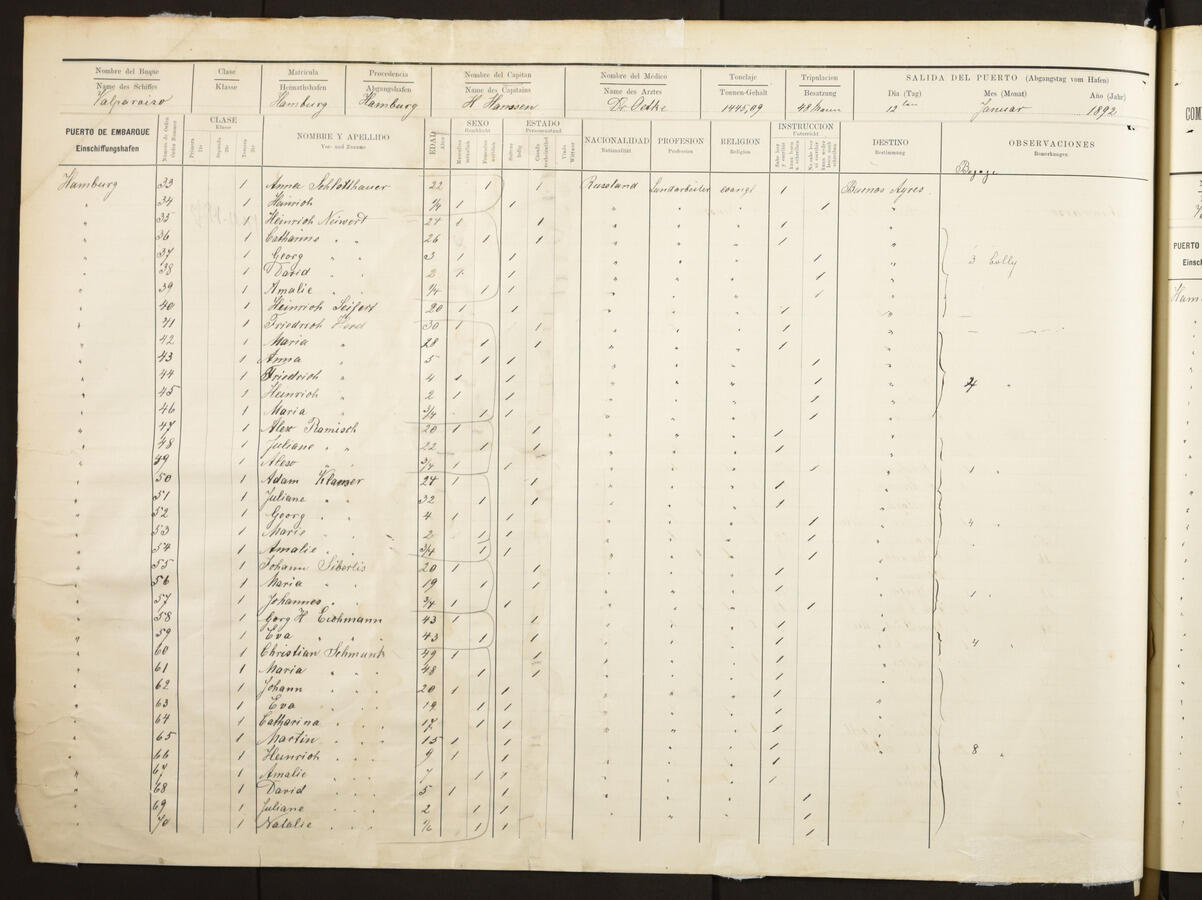 Nombre del Buque Clase Matricula Procedencia Nombre del Capitan Nombre del Médico Tonelaje Tripulacion SALIDA DEL PUERTO (Abgangstag vom Hafen)
Name des Schiffes Klasse Heimathshafen Abgangshafen Name des Capitains Name des Arztes Tonnen-Gehalt Besatzung Dia (Tag) Mes (Monat) Año (Jahr)
Valparaiso Hamburg Hamburg H Hanssen Dr. Oethe 1445,09 48 Mann 12 ten Januar 1892
PUERTO DE EMBARQUE CLASE NOMBRE Y APELLIDO EDAD SEXO ESTADO NACIONALIDAD PROFESION RELIGION INSTRUCCION DESTINO OBSERVACIONES
Einschiffungshafen Klasse Vor- und Zuname Alter Geschlecht Personenstand Nationalität Profession Religion Unterricht Bestimmung Bemerkungen
Hamburg 33 1 Anna Schlotthauer 22 1 1 Russland Landarbeiter evangl 1 Buenos Ayres
" 34 1 Heinrich " 1 1 " " " 1 "
" 35 1 Heinrich Neiwert 27 1 1 " " " 1 "
" 36 1 Catharina " " 26 1 1 " " " 1 "
" 37 1 Georg " " 3 1 1 " " " 1 " 3 Colly
" 38 1 David " " 2 1 1 " " " 1 "
" 39 1 Amalie " " 1 1 " " " 1 "
" 40 1 Heinrich Seifert 20 1 1 " " " 1 " —
" 41 1 Friedrich 30 1 1 " " " 1 "
" 42 1 Maria " 28 1 1 " " " 1 "
" 43 1 Anna " 5 1 1 " " " 1 "
" 44 1 Friedrich " 4 1 1 " " " 1 " 4 "
" 45 1 Heinrich " 2 1 1 " " " 1 "
" 46 1 Maria " 3/4 1 1 " " " 1 "
" 47 1 Alex Ramisch 20 1 1 " " " 1 "
" 48 1 Juliane " " 22 1 1 " " " 1 "
" 49 1 Alexo " " 3/4 1 1 " " " 1 " 1 "
" 50 1 Adam 24 1 1 " " " 1 "
" 51 1 Juliane " " 32 1 1 " " " 1 "
" 52 1 Georg " " 4 1 1 " " " 1 "
" 53 1 Marie " " 2 1 1 " " " 1 " 4 "
" 54 1 Amalie " " 3/4 1 1 " " " 1 "
" 55 1 Johann Sibertis 20 1 1 " " " 1 "
" 56 1 Maria " " 19 1 1 " " " 1 "
" 57 1 Johannes " 3/4 1 1 " " " 1 " 1 "
" 58 1 Georg H Eichmann 43 1 1 " " " 1 "
" 59 1 Eva " " " 43 1 1 " " " 1 "
" 60 1 Christian Schmunk 49 1 1 " " " 1 " 4 "
" 61 1 Maria " " 48 1 1 " " " 1 "
" 62 1 Johann " " " 20 1 1 " " " 1 "
" 63 1 Eva " " " 19 1 1 " " " 1 "
" 64 1 Catharina " " " 17 1 1 " " " 1 "
" 65 1 Martin " " " 15 1 1 " " " 1 "
" 66 1 Heinrich " " " 9 1 1 " " " 1 8 "
" 67 1 Amalie " " " 7 1 1 " " " 1
" 68 1 David " " " 5 1 1 " " " 1
" 69 1 Juliane " " " 2 1 1 " " " 1
" 70 1 Natalie " " " 1/6 1 1 " " " 1
Bagage
COM
PUERTO
Einsch
Ham